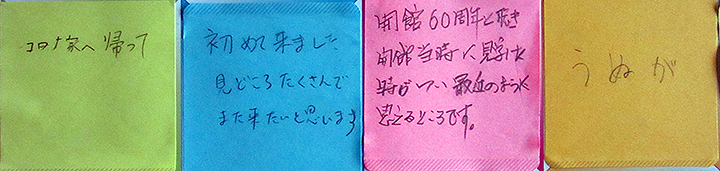 コロナ家へ帰って
初めて来ました
見どころたくさんで
また来たいと思います
開館60周年と聞き
開館当時に見学した
時がつい最近のように
思えるところです。
うぬが